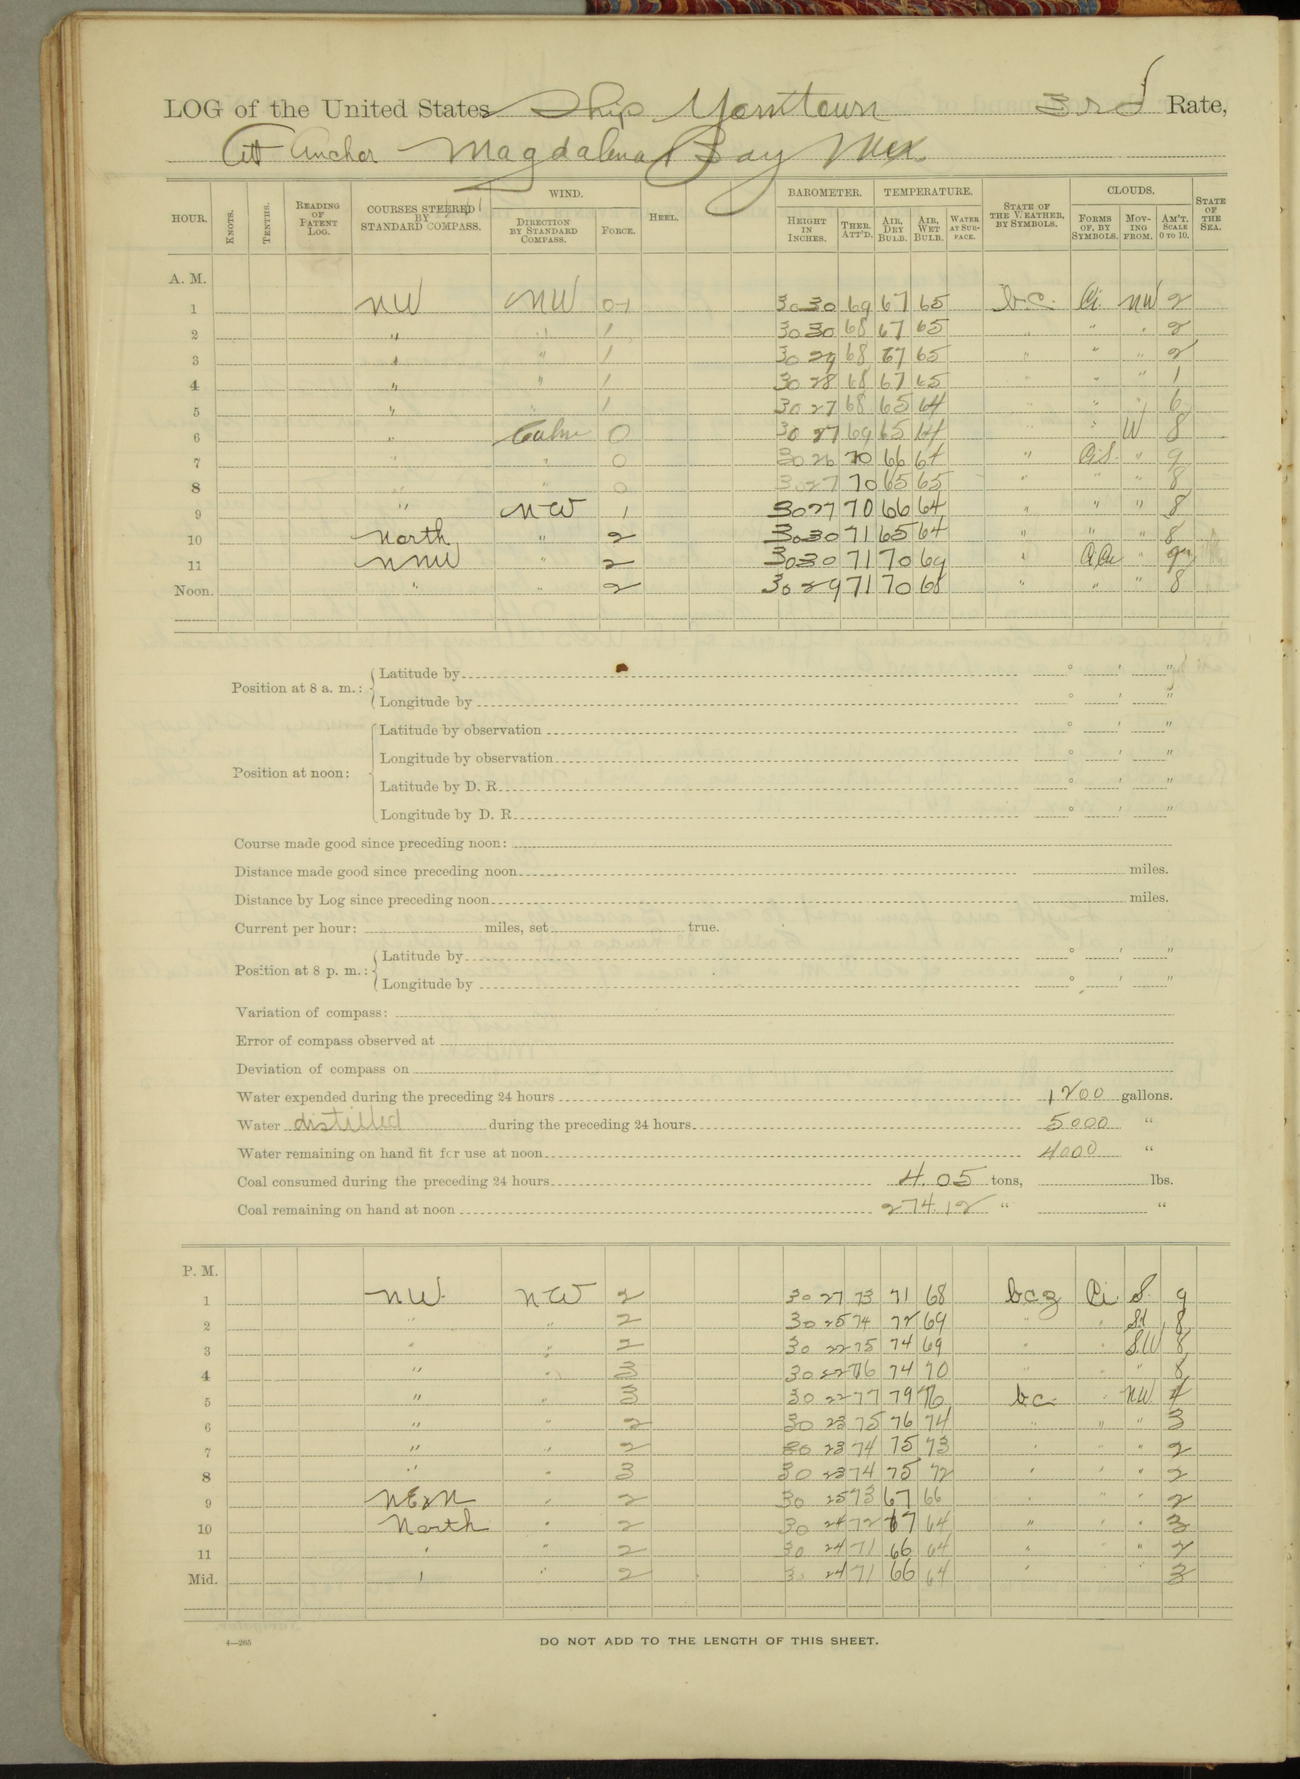 LOG of the United States Ship Yorktown 3rd Rate,
At Anchor Magdalena Bay Mex.
HOUR. KNOTS. TENTHS. READING OF PATENT LOG. COURSES STEERED BY STANDARD COMPASS. WIND. DIRECTION BY STANDARD COMPASS. FORCE. HEEL. BAROMETER. HEIGHT IN INCHES. THER. ATT'D. TEMPERATURE. AIR, DRY BULB. AIR, WET BULB. WATER AT SURFACE. STATE OF THE WEATHER, BY SYMBOLS. CLOUDS. FORMS OF, BY SYMBOLS. MOVING FROM. AM'T. SCALE 0 TO 10. STATE OF THE SEA.
A. M.
1 NW NW 0-1 30 30 69 67 65 b.c. Ci NW 2
2 " " 1 30 30 68 67 65 " " " 2
3 " " 1 30 29 68 67 65 " " " 2
4 " " 1 30 28 68 67 65 " " " 1
5 " " 1 30 27 68 65 64 " " " 6
6 " Calm 0 30 27 69 65 64 " " W 8
7 " " 0 30 26 70 66 64 " Ci.S. " 9
8 " " 0 30 27 70 65 65 " " " 8
9 " NW 1 30 27 70 66 64 " " " 8
10 North " 2 30 30 71 65 64 " " " 8
11 NNW " 2 30 30 71 70 69 " Ci.Cu " 9
Noon. " " 2 30 29 71 70 68 " " " 8
Position at 8 a. m.: Latitude by ° ' "
Longitude by ° ' "
Position at noon: Latitude by observation ° ' "
Longitude by observation ° ' "
Latitude by D. R. ° ' "
Longitude by D. R. ° ' "
Course made good since preceding noon:
Distance made good since preceding noon miles.
Distance by Log since preceding noon miles.
Current per hour: miles, set true.
Position at 8 p. m.: Latitude by ° ' "
Longitude by ° ' "
Variation of compass:
Error of compass observed at
Deviation of compass on
Water expended during the preceding 24 hours 1200 gallons.
Water distilled during the preceding 24 hours 5000 "
Water remaining on hand fit for use at noon 4000 "
Coal consumed during the preceding 24 hours 4.05 tons, lbs.
Coal remaining on hand at noon 274.12 " "
P. M.
1 NW. NW 2 30 27 73 71 68 bcz Ci. S. 9
2 " " 2 30 25 74 72 69 " " 8
3 " " 2 30 22 75 74 69 " " S.W 8
4 " " 3 30 22 76 74 70 " " " 8
5 " " 3 30 22 77 79 76 bc " NW. 4
6 " " 2 30 23 75 76 74 " " " 3
7 " " 2 30 23 74 75 73 " " " 2
8 " " 3 30 23 74 75 72 " " " 2
9 NExN " 2 30 25 73 67 66 " " " 2
10 North " 2 30 24 72 67 64 " " " 3
11 " " 2 30 24 71 66 64 " " " 2
Mid. " " 2 30 24 71 66 64 " " " 3
4—265
DO NOT ADD TO THE LENGTH OF THIS SHEET.